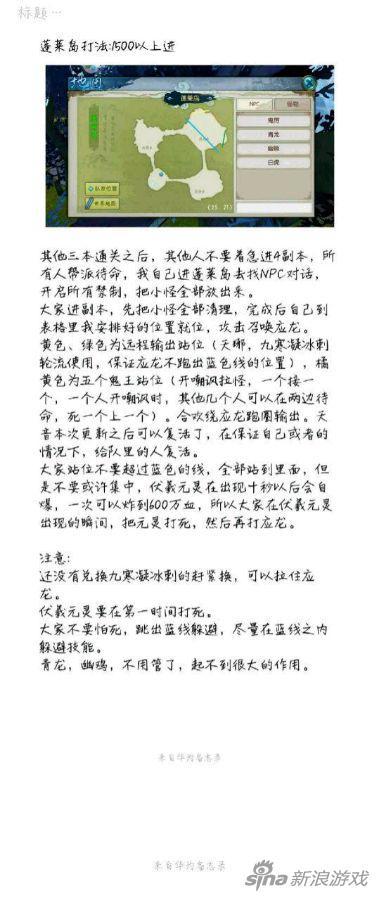 标题…
蓬莱岛打法:1500以上进
地图
蓬莱岛
NPC
鬼厉
青龙
幽姬
白虎
世界地图
其他三本通关之后，其他人不要着急进4副本，所
有人帮派待命，我自己进蓬莱岛去找NPC对话，
开启所有禁制，把小怪全部放出来。
大家进副本，先把小怪全部清理，完成后自己到
表格里我安排好的位置就位，攻击召唤应龙。
黄色、绿色为远程输出站位（天邪，九寒凝冰刺
轮流使用，保证应龙不跑出蓝色线的位置），橘
黄色为五个鬼王站位（开嘲讽拉怪，一个接一
个，一个人开嘲讽时，其他几个人可以在两边待
命，死一个上一个）。合欢绕应龙跑圈输出。天
音本次更新之后可以复活了，在保证自己或者的
情况下，给队里的人复活。
大家站位不要超过蓝色的线，全部站到里面，但
是不要或许集中，伏羲元是在出现十秒以后会自
爆，一次可以炸到600万血，所以大家在伏羲元是
出现的瞬间，把元是打死，然后再打应龙。
注意：
还没有兑换九寒凝冰刺的赶紧换，可以拉住应
龙。
伏羲元是要在第一时间打死。
大家不要怕死，跳出蓝线躲避，尽量在蓝线之内
躲避技能。
青龙，幽鸡，不用管了，起不到很大的作用。
来自华为备忘录
来自华为备忘录
sina新浪游戏